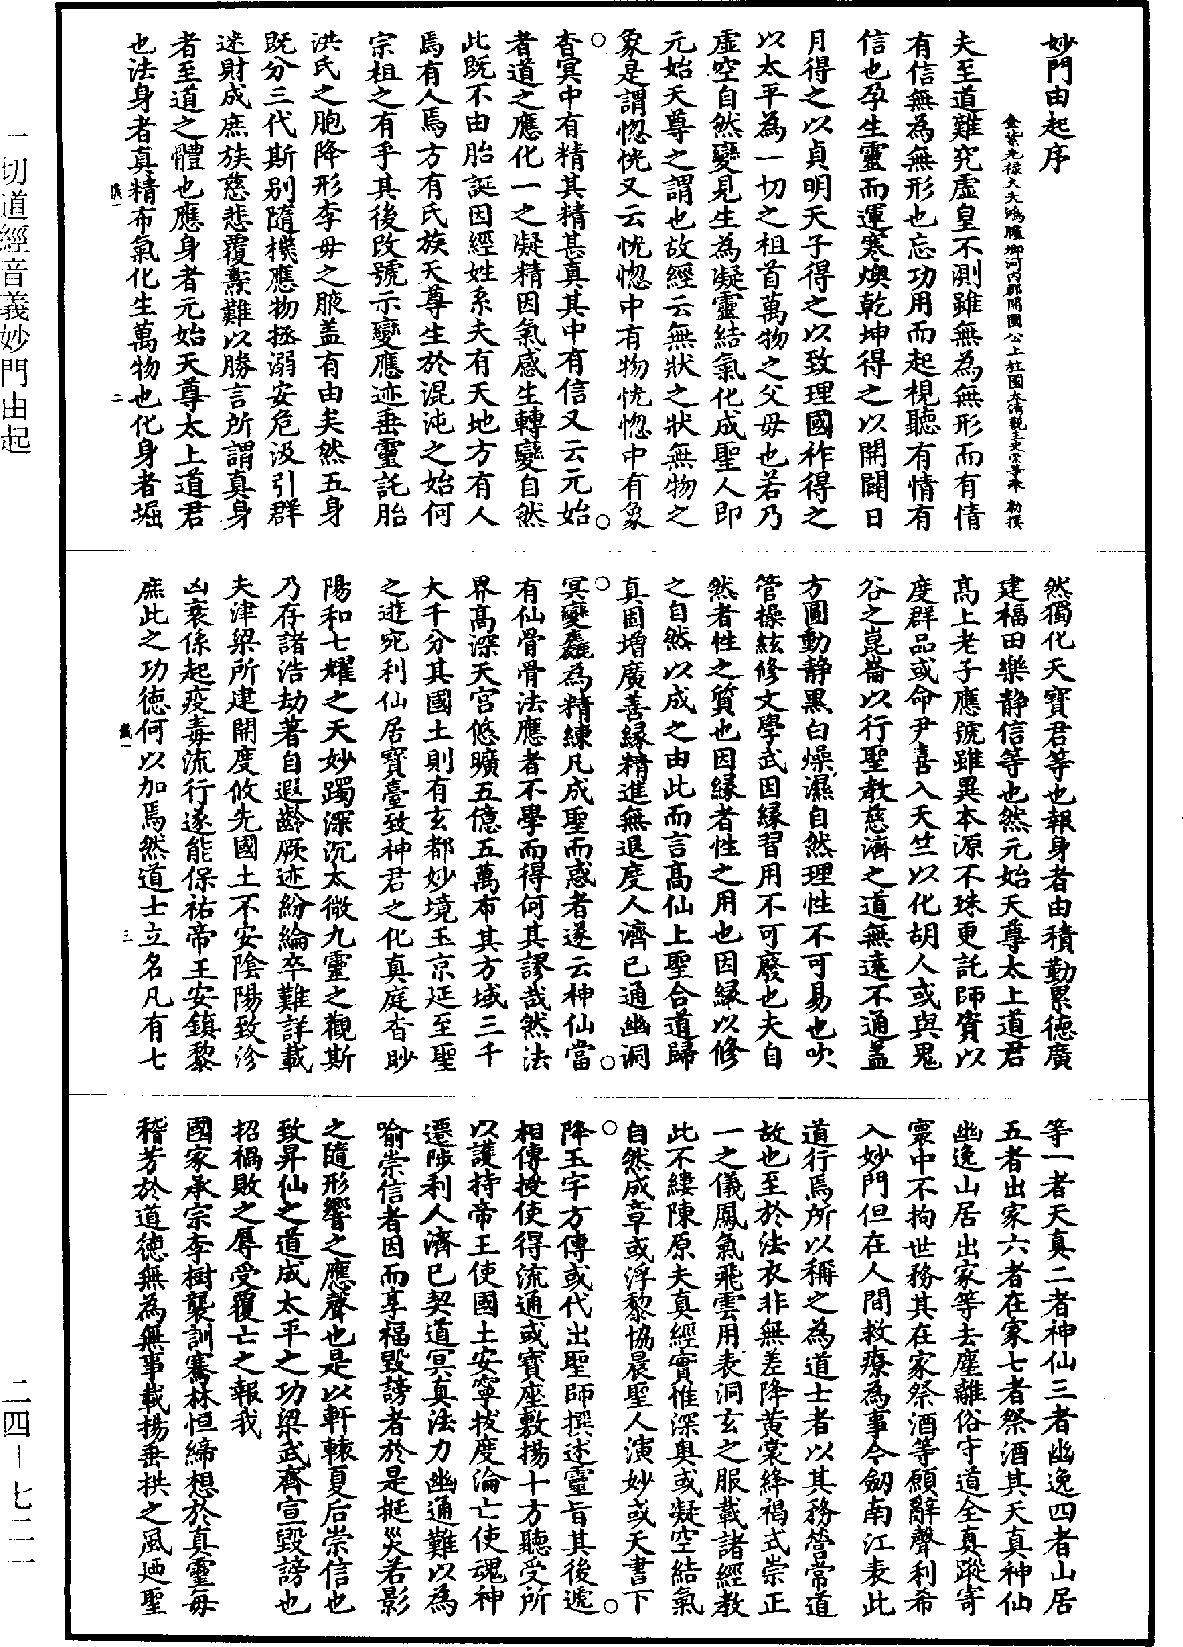 妙門由起序
金紫光祿大夫鴻臚卿河內郡開國公上柱國太清觀主史崇等奉 勑撰
夫至道難究虛皇不測雖無為無形而有情
有信無為無形也忘功用而起視聽有情有
信也孕生靈而運寒燠乾坤得之以開闢日
月得之以貞明天子得之以致理國祚得之
以太平為一切之祖首萬物之父母也若乃
虛空自然變見生為凝靈結氣化成聖人即
元始天尊之謂也故經云無狀之狀無物之
象是謂惚恍又云恍惚中有物恍惚中有象
杳冥中有精其精甚真其中有信又云元始
者道之應化一之凝精因氣感生轉變自然
此既不由胎誕因經姓系夫有天地方有人
焉有人焉方有氏族天尊生於混沌之始何
宗祖之有乎其後改號示變應迹垂靈託胎
洪氏之胞降形李母之腋蓋有由矣然五身
既分三代斯別隨機應物拯溺安危汲引群
迷財成庶族慈悲覆燾難以勝言所謂真身
者至道之體也應身者元始天尊太上道君
也法身者真精布氣化生萬物也化身者堀
儀一
二
然獨化天寶君等也報身者由積勤累德廣
建福田樂靜信等也然元始天尊太上道君
高上老子應號雖異本源不殊更託師資以
度群品或命尹喜入天竺以化胡人或與鬼
谷之崑崙以行聖教慈濟之道無遠不通蓋
方圓動靜黑白燥濕自然理性不可易也吹
管操絃修文學武因緣習用不可廢也夫自
然者性之質也因緣者性之用也因緣以修
之自然以成之由此而言高仙上聖合道歸
真固增廣善緣精進無退度人濟已通幽洞
冥變麤為精練凡成聖而惑者遂云神仙當
有仙骨骨法應者不學而得何其謬哉然法
界高深天宮悠曠五億五萬布其方域三千
大千分其國土則有玄都妙境玉京延至聖
之遊宛利仙居寶臺致神君之化真庭杳眇
陽和七耀之天妙躅深沉太微九靈之觀斯
乃存諸浩劫著自遐齡厥迹紛綸卒難詳載
夫津梁所建開度攸先國土不安陰陽致沴
凶衰係起疫毒流行遂能保祐帝王安鎮黎
庶此之功德何以加焉然道士立名凡有七
儀一
三
等一者天真二者神仙三者幽逸四者山居
五者出家六者在家七者祭酒其天真神仙
幽逸山居出家等去塵離俗守道全真蹤寄
寰中不拘世務其在家祭酒等願辭聲利希
入妙門但在人間救療為事今劒南江表此
道行焉所以稱之為道士者以其務營常道
故也至於法衣非無差降黃裳絳褐式崇正
一之儀鳳氣飛雲用表洞玄之服載諸經教
此不縷陳原夫真經實惟深奥或凝空結氣
自然成章或浮黎協晨聖人演妙或天書下
降玉字方傳或代出聖師撰述靈旨其後遞
相傳授使得流通或寶座敷揚十方聽受所
以護持帝王使國土安寧拔度淪亡使魂神
遷陟利人濟已契道冥真法力幽通難以為
喻崇信者因而享福毀謗者於是挻災若影
之隨形響之應聲也是以軒轅夏后崇信也
致昇仙之道成太平之功梁武齊宣毀謗也
招禍敗之辱受覆亡之報我
國家承宗李樹襲訓騫林恒締想於真靈每
稽芳於道德無為無事載揚垂拱之風廼聖
一切道經音義妙門由起
二四—七二一